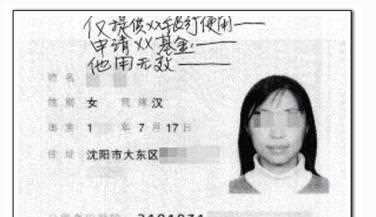 仅提供XX银行使用——
申请XX基金.——
他用无效——
姓 名
性 别 女 民 族 汉
出 生 1 年 7 月 17 日
住 址 沈阳市大东区
公民身份号码 2101031